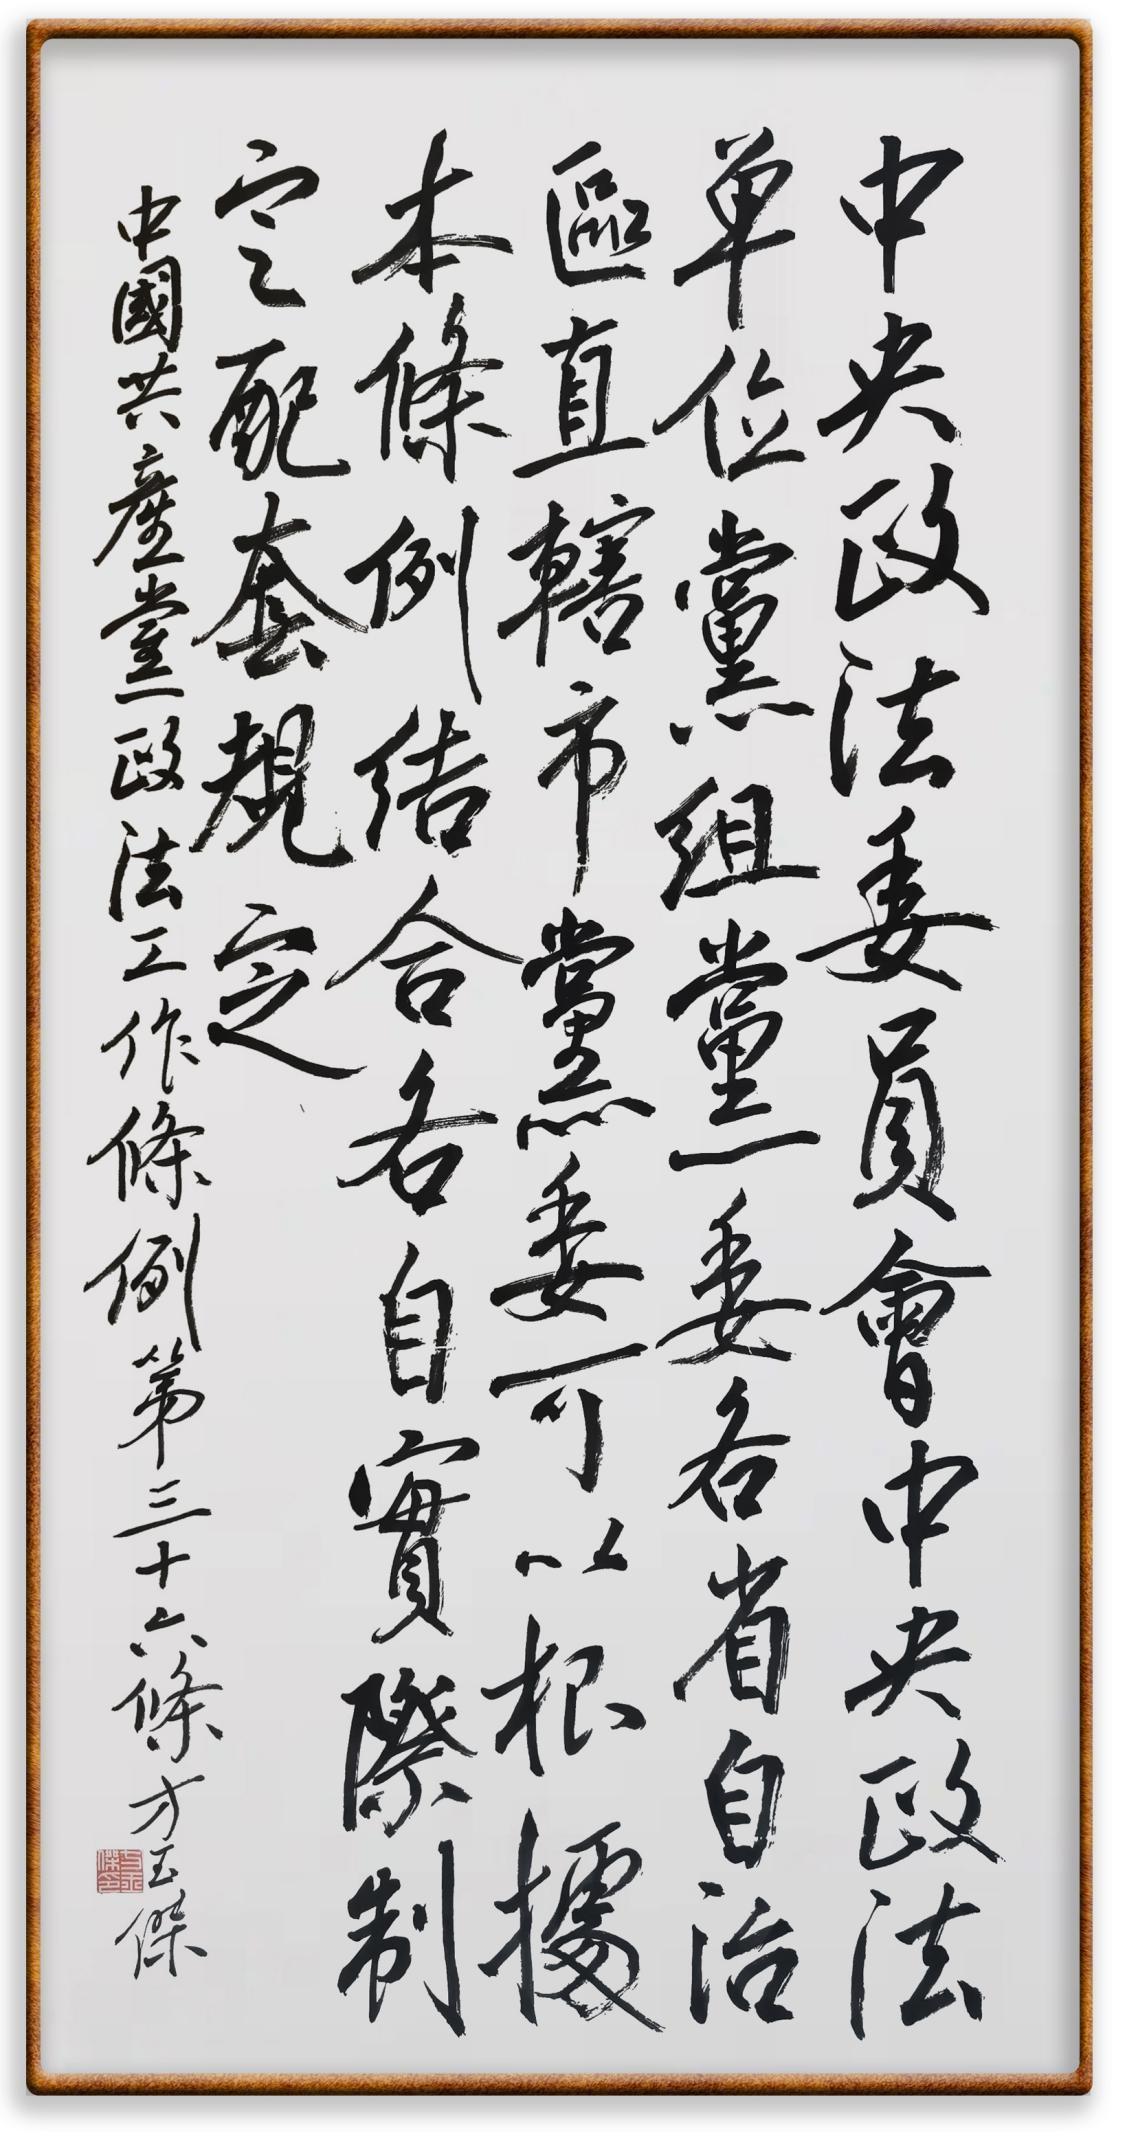 中央政法委員會中央政法
单位黨組黨委各省自治
區直轄市黨委可以根據
本條例結合各自實際制
定配套規定
中國共產黨政法工作條例第三十六條方玉傑